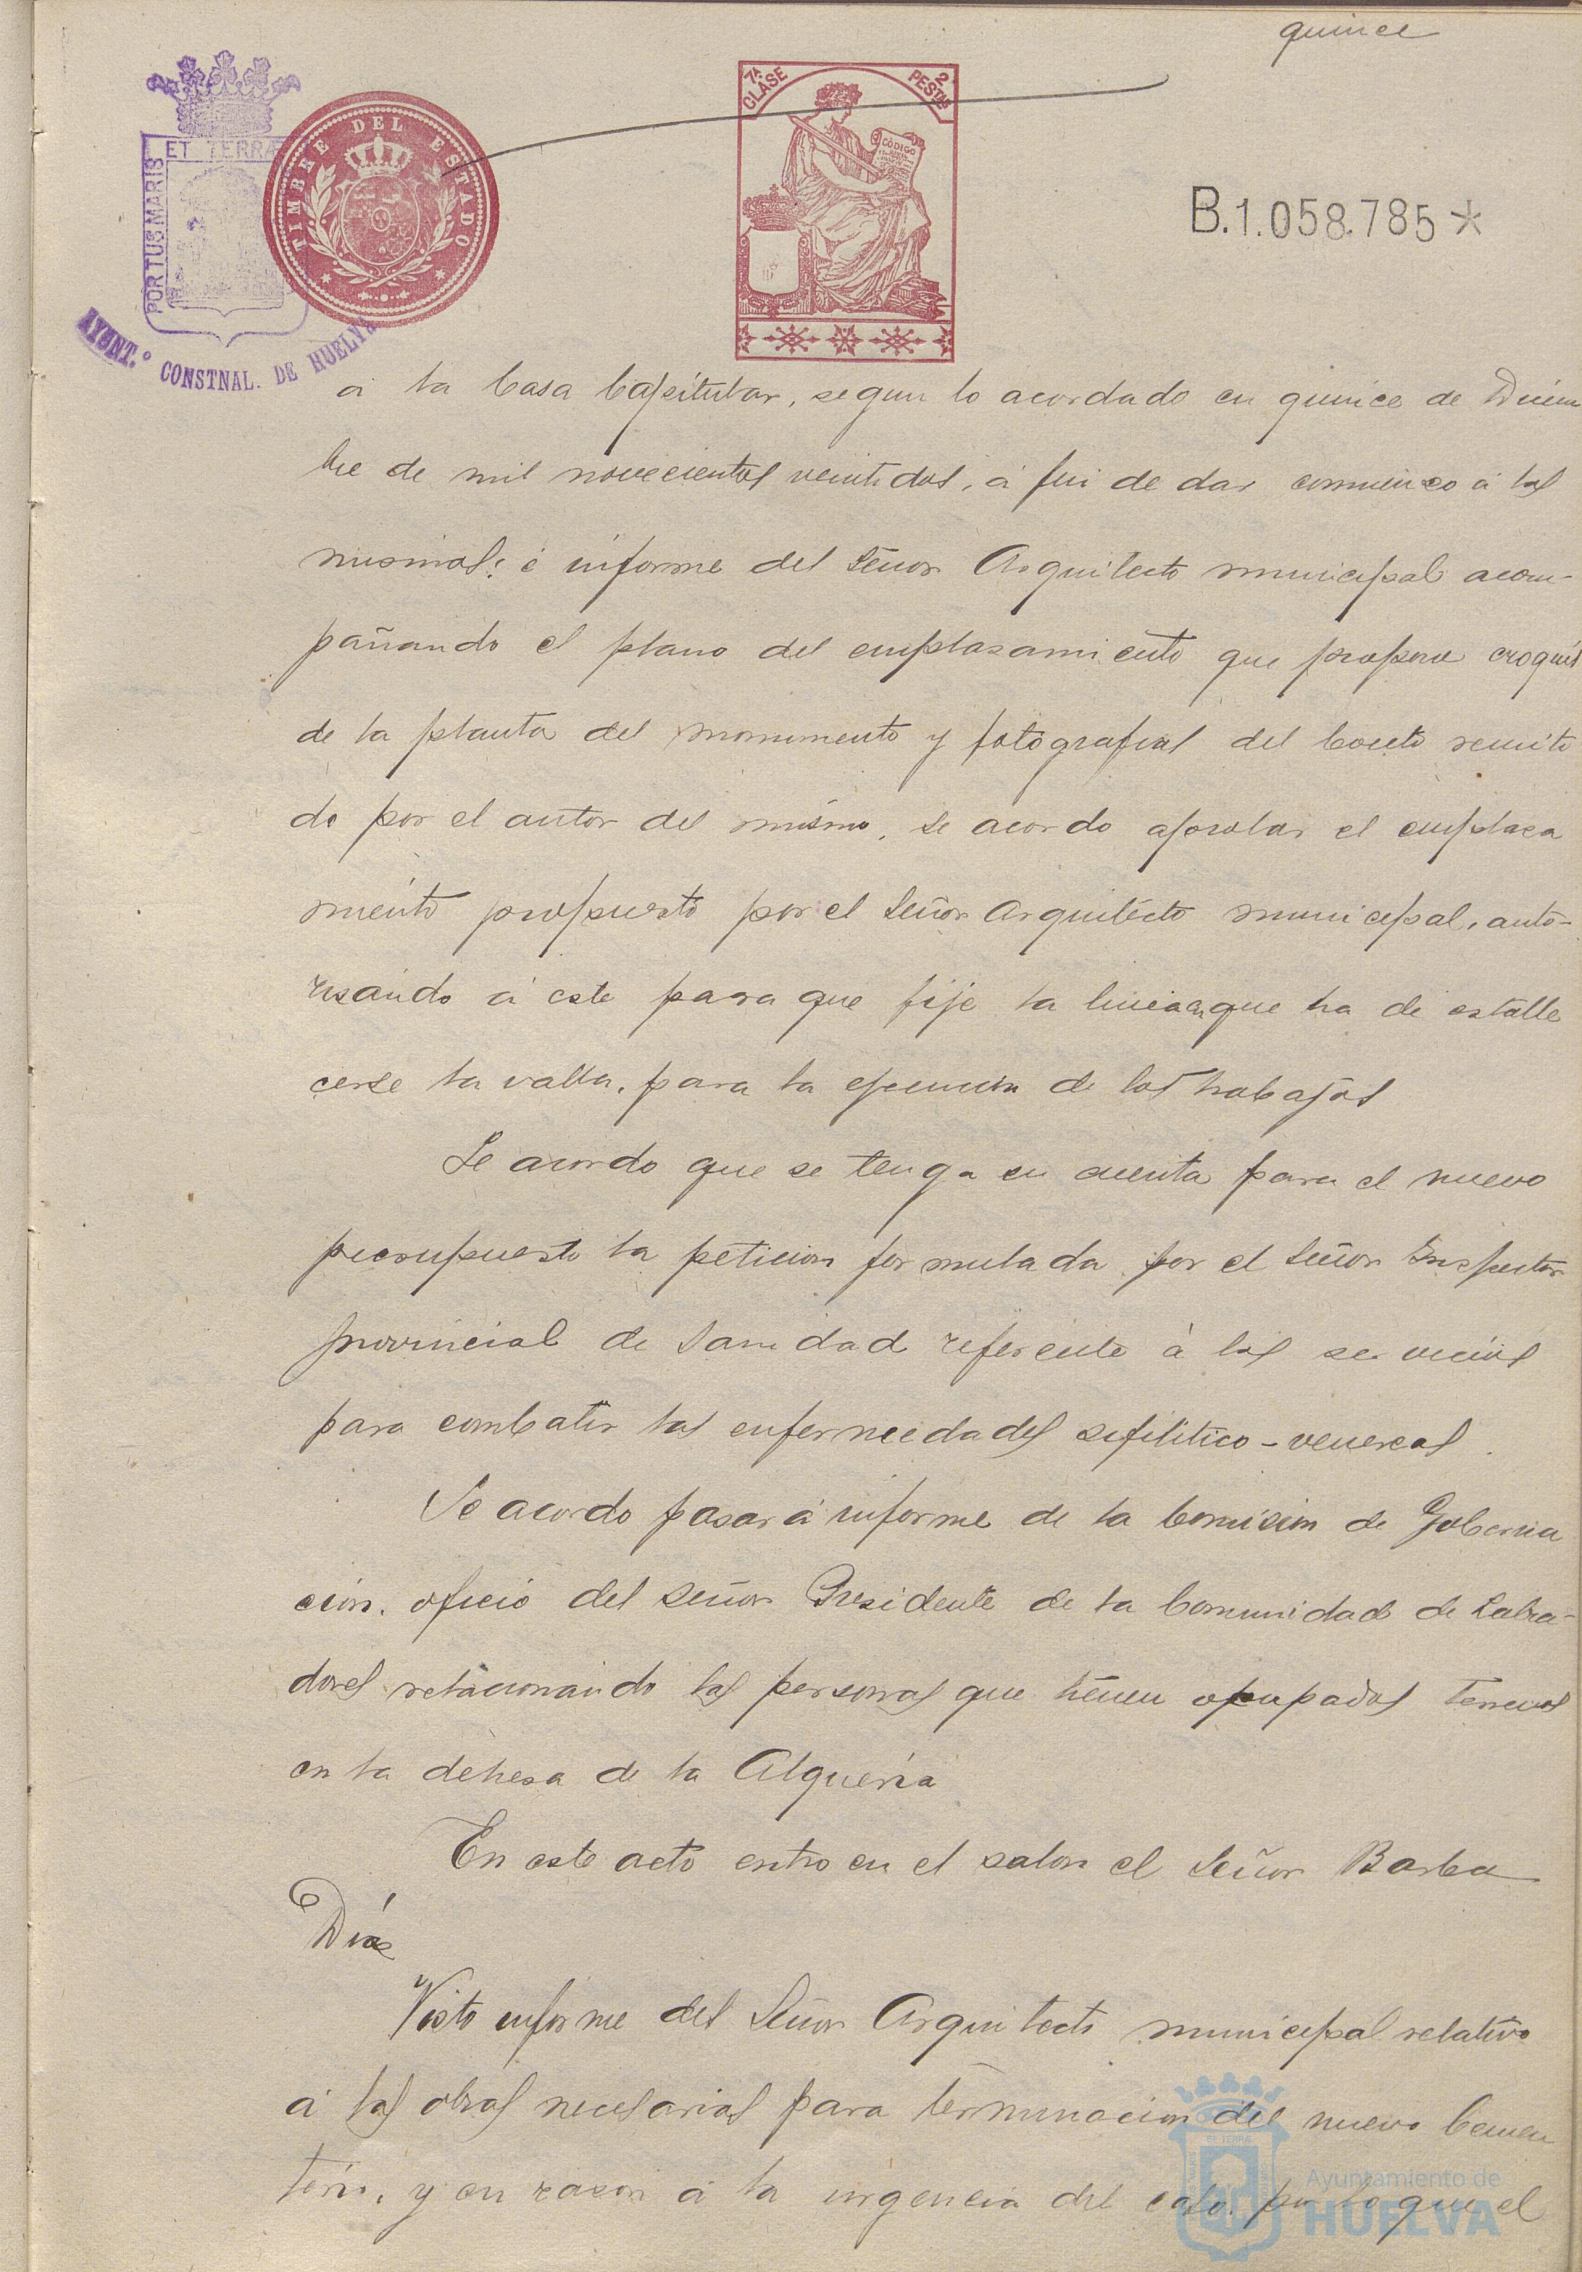 quince
7ª CLASE
2 PESTAS
ET TERRÆ
PORTUS MARIS
TIMBRE DEL ESTADO
CÓDIGO
B.1.058.785*
AYUNT.º CONSTNAL. DE HUELVA
á la Casa Capitular, segun lo acordado en quince de Diciem
bre de mil novecientos veintidos, á fin de dar comienzo á las
mismas; é informe del Señor Arquitecto municipal acom-
pañando el plano del emplasamiento que propone croquis
de la planta del monumento y fotografias del boceto remiti
do por el autor del mismo, se acordo aprobar el emplaza
miento propuesto por el Señor Arquitecto municipal, auto-
risando á este para que fije la linea en que ha de estable
cerse la valla, para la ejecucion de los trabajos
Se acordo que se tenga en cuenta para el nuevo
presupuesto la peticion formulada por el Señor Inspector
provincial de Sanidad referente á los servicios
para combatir las enfermedades sifilitico-venereas.
Se acordo pasar á informe de la Comision de Goberna
cion, oficio del Señor Presidente de la Comunidad de Labra-
dores relacionando las personas que tienen ocupados terrenos
en la dehesa de la Alquería
En este acto entro en el salon el Señor Barba
Diaz
Visto informe del Señor Arquitecto municipal relativo
á las obras necesarias para terminacion del nuevo Cemen
terio, y en razon á la urgencia del caso, por lo que el
Ayuntamiento de
HUELVA